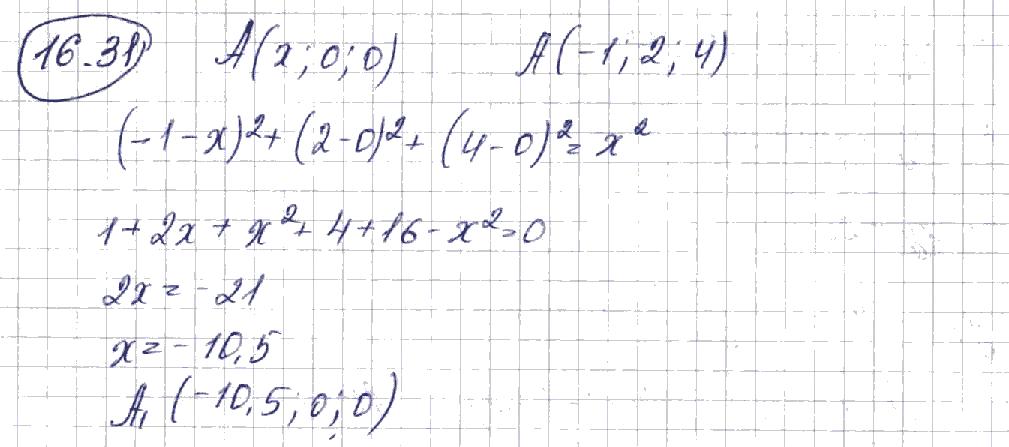 16.31) A(x; 0; 0) A(-1; 2; 4)
(-1-x)²+(2-0)²+(4-0)²=x²
1+2x+x²+4+16-x²=0
2x=-21
x=-10,5
A₁(-10,5; 0; 0)